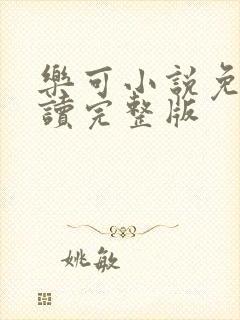 樂可小說免
讀完整版
姚敏